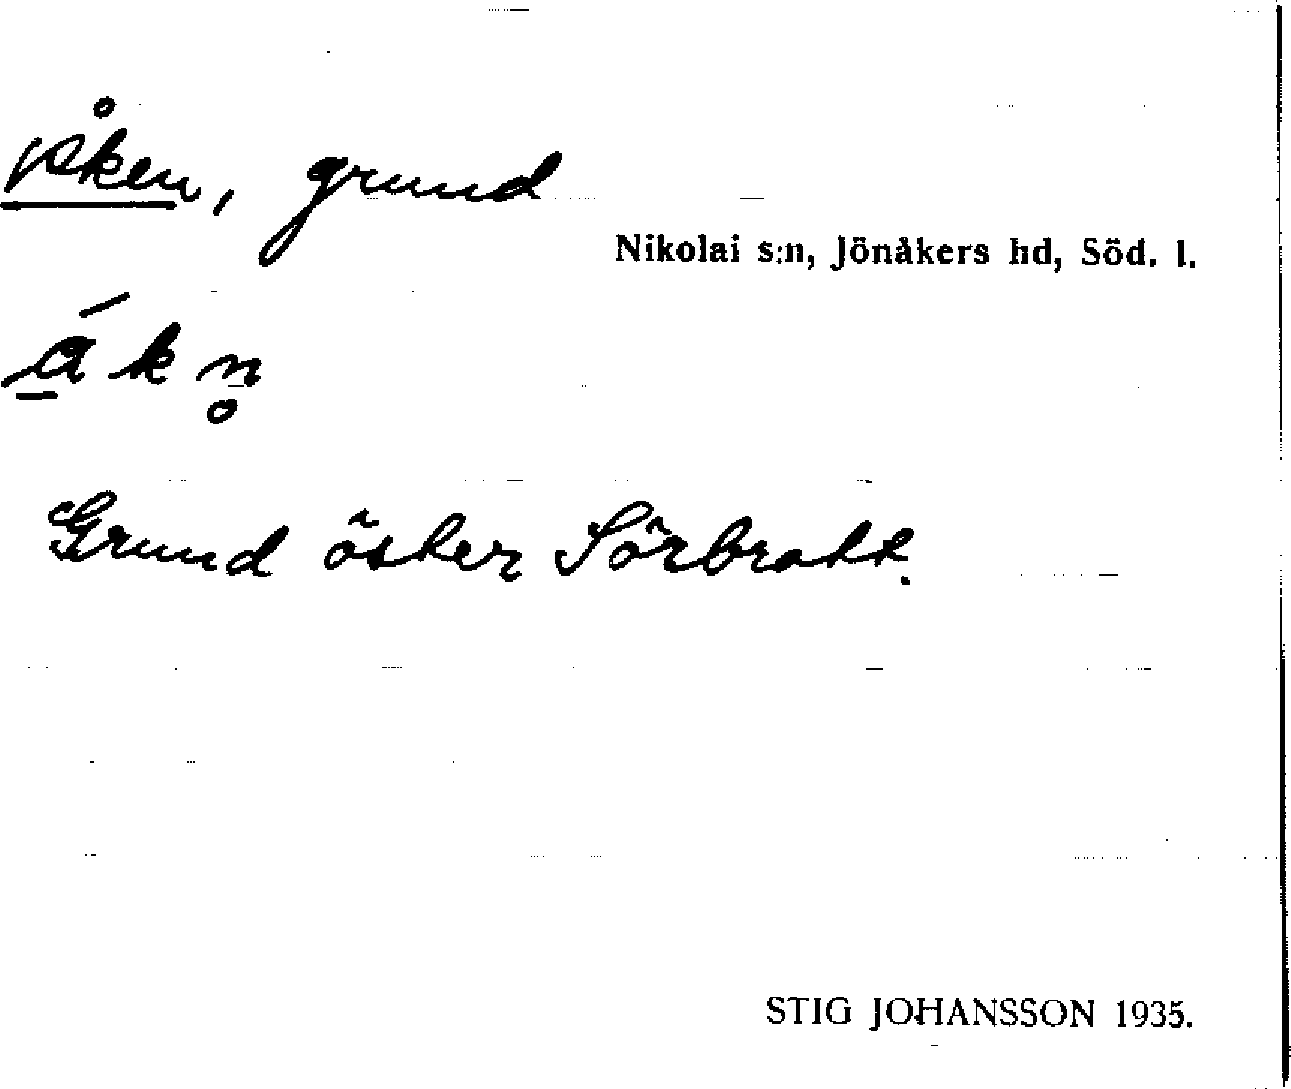 Åken, grund
Nikolai s:n, Jönåkers hd, Söd. l.
á̱ k n̥
Grund öster Sörbrott.
STIG JOHANSSON 1935.